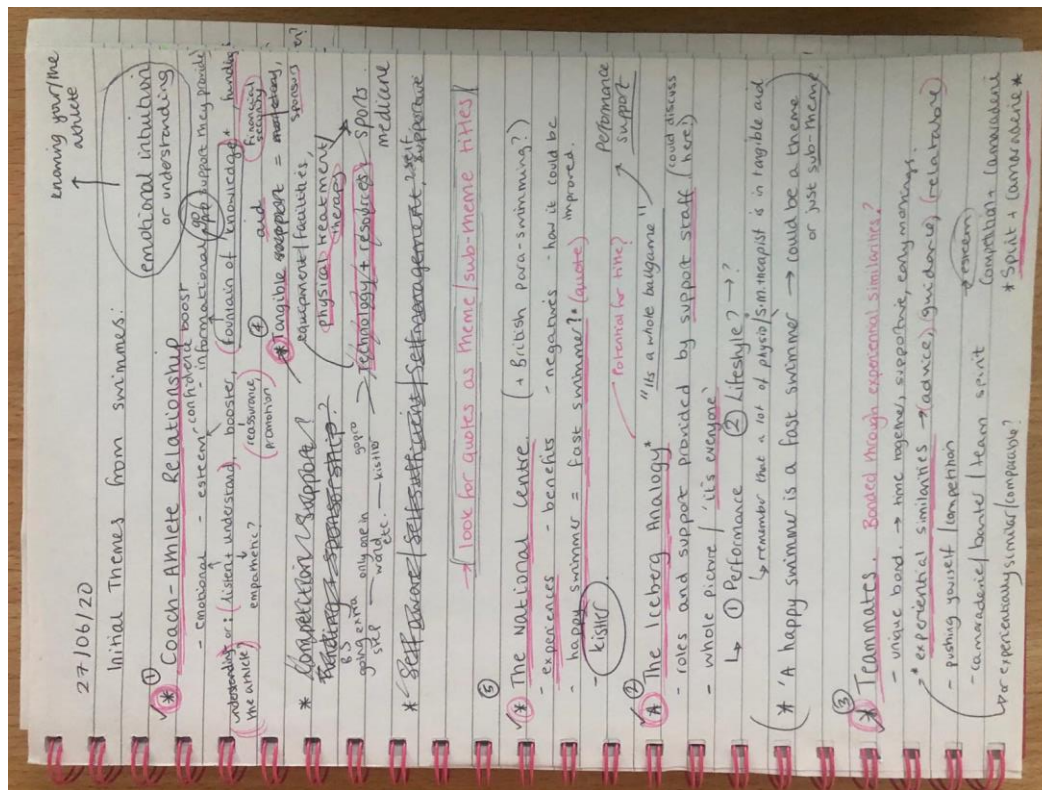 27/06/20
Initial Themes from swimmers:
knowing your/the
athlete
①
* Coach-Athlete Relationship
emotional intuition
or understanding
- emotional - esteem - informational
confidence boost
support they provide
understanding or: (listen + understand), booster, (fountain of knowledge*
(the athlete)
empathetic?
(reassurance,
promotion)
funding?
④
aid
(financial
security)
* Competition Support?
* Tangible support = monetary,
sponsors
equipment/facilities,
Funding / sponsorship?
physical treatment
therapy
BS
going extra
step
only one in
world
etc.
gopro
kistler
Technology (+ resources)
sports
medicine
* Self Aware / Self sufficient / Self management, self
supportive
→ look for quotes as theme/sub-theme titles!
⑤
* The National Centre. (+ British para-swimming?)
- experiences - benefits - negatives - how it could be
improved.
- happy swimmer = fast swimmer?* (quote)
kistler
Potential for title?
Performance
support
②
* The Iceberg Analogy*
"its a whole ballgame"
- roles and support provided by support staff (could discuss
here)
- whole picture / 'it's everyone'
↳ ① Performance ② Lifestyle? →?
↳ remember that a lot of physio/S.M. therapist is in tangible aid
(* 'A happy swimmer is a fast swimmer → could be a theme
or just sub-theme.
③
* Teammates. Bonded through experiential similarities?
- unique bond. → time together, supportive, early mornings.
* experiential similarities → (advice) (guidance) (relatable)
- pushing yourself / competition
→ esteem
- camaraderie / banter / team spirit
Competition + Camaraderie
↳ or experientially similar/comparable?
* Spirit + Camaraderie *